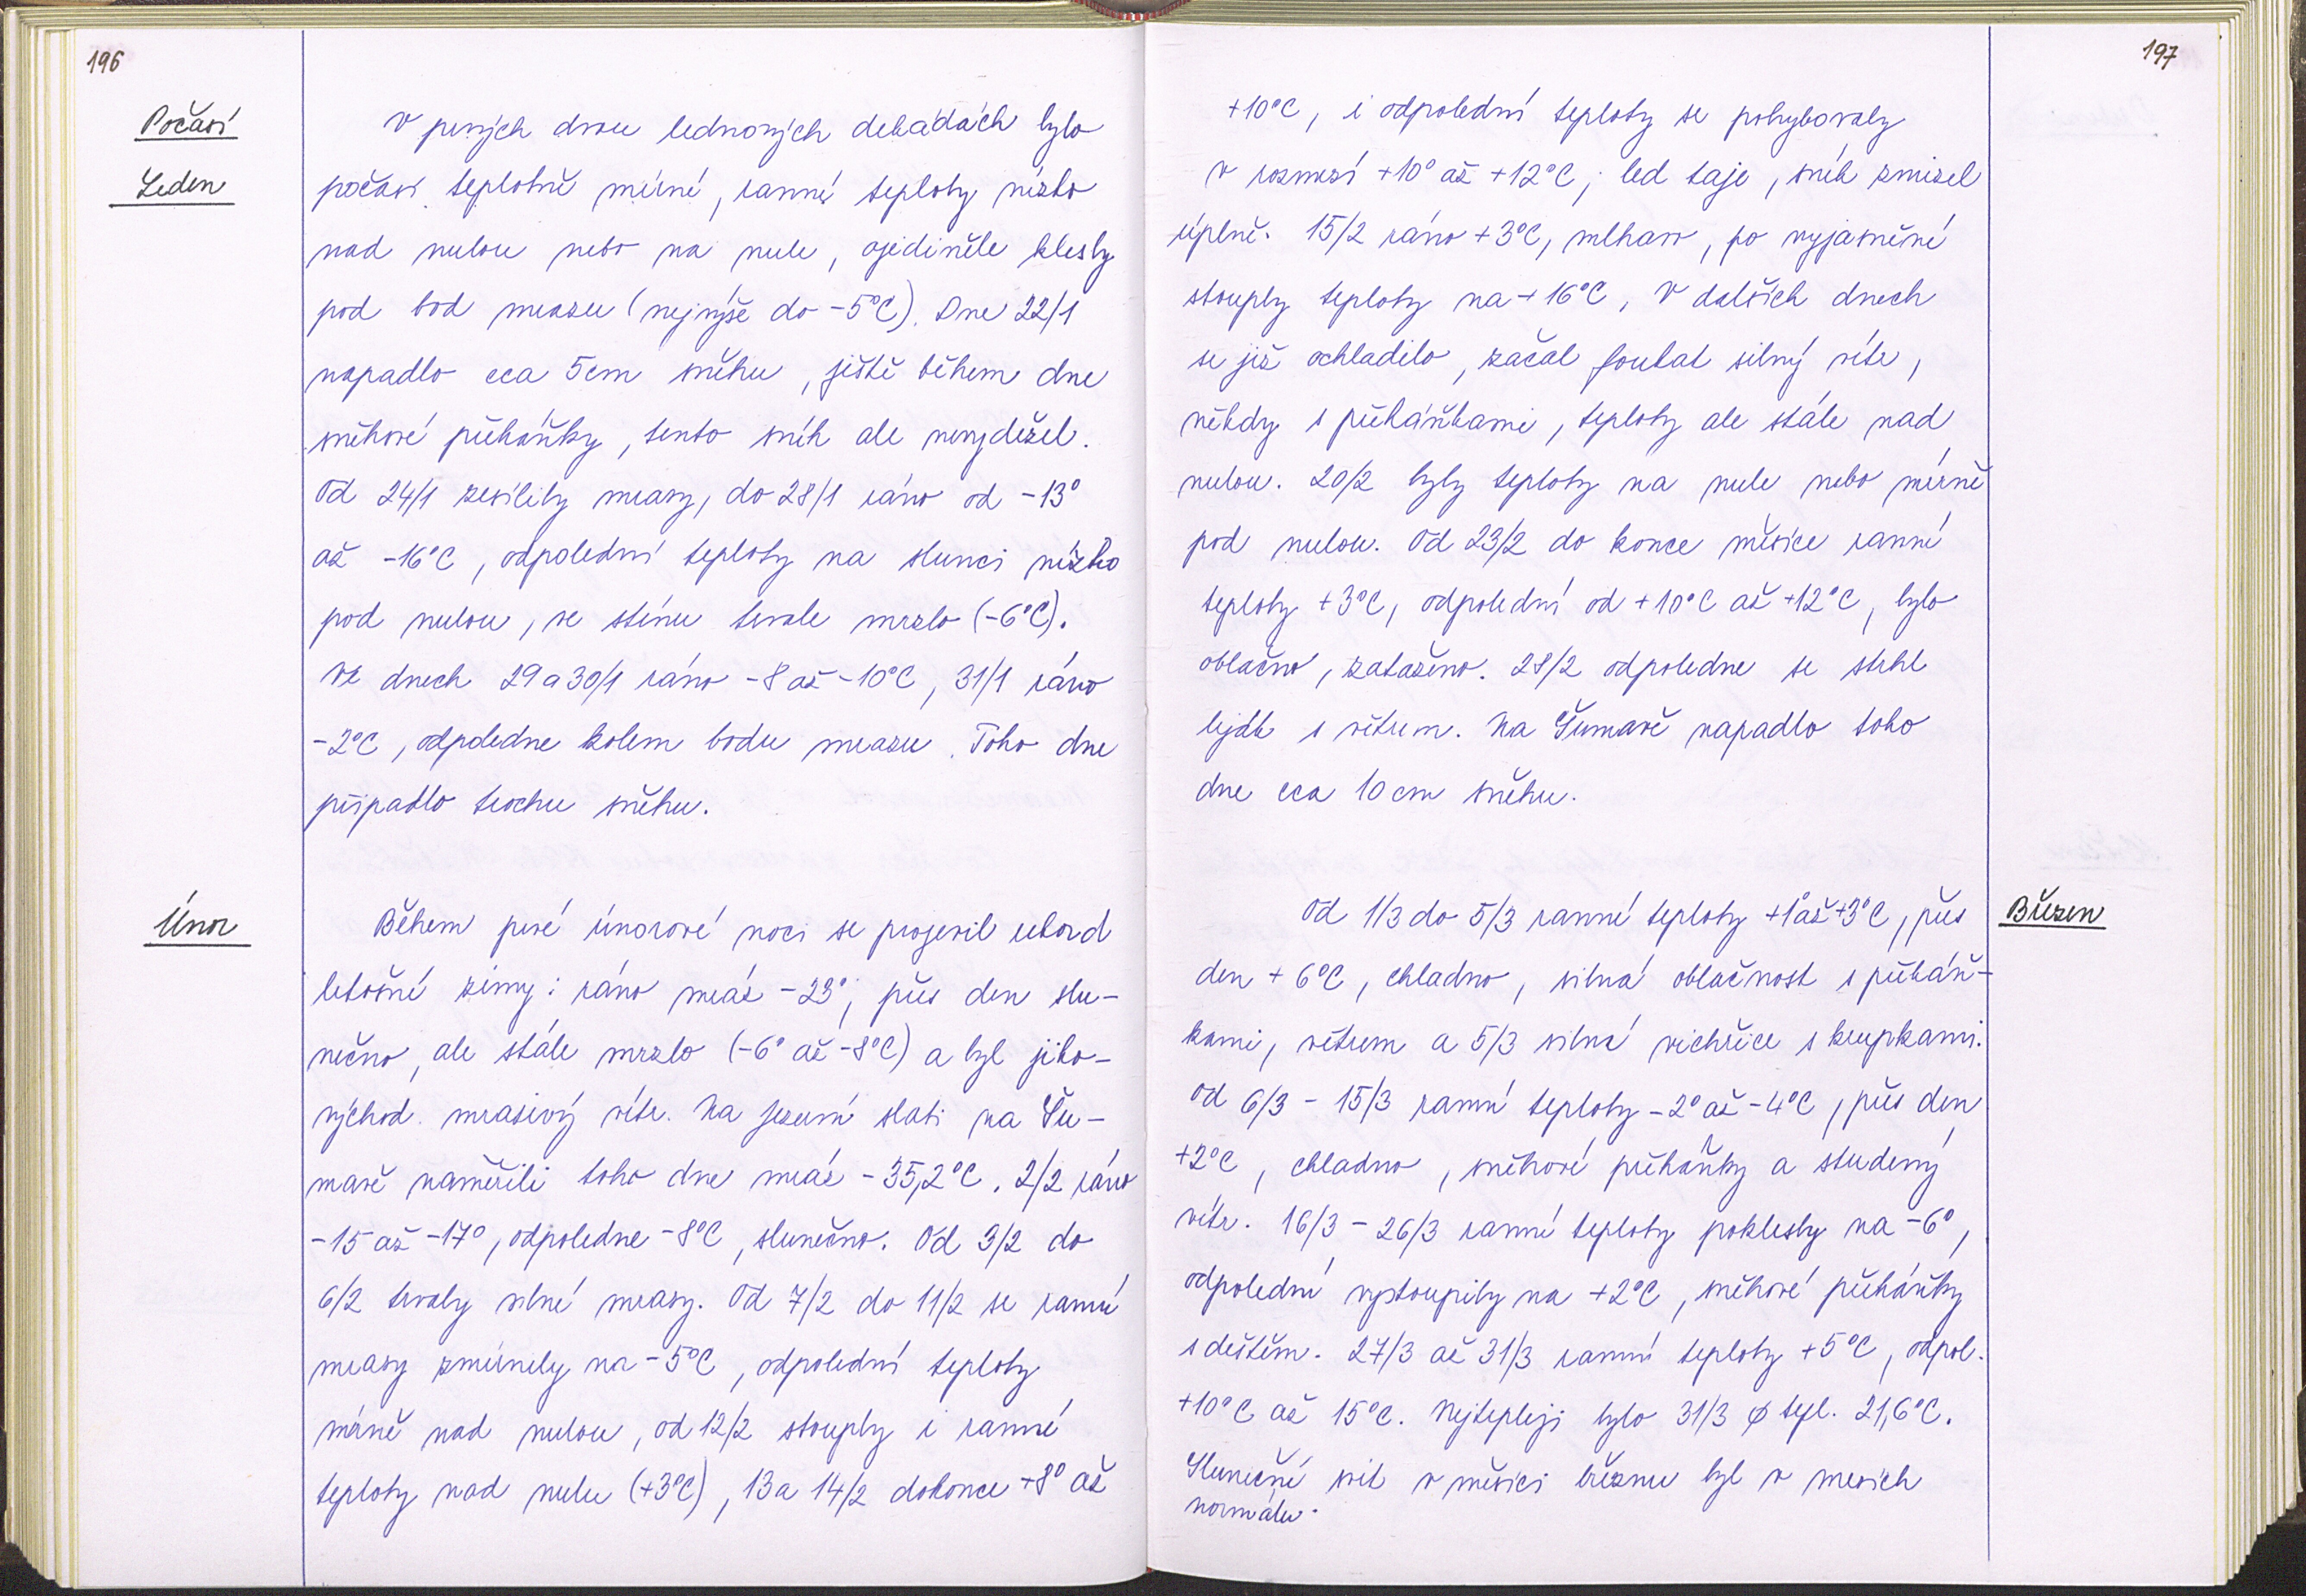 196
Počasí
Leden
V prvých dvou lednových dekádách bylo
počasí teplotně mírné, ranné teploty nízko
nad nulou nebo na nule, ojediněle klesly
pod bod mrazu (nejvýše do -5°C). Dne 22/1
napadlo cca 5cm sněhu, ještě během dne
sněhové přeháňky, tento sníh ale nevydržel.
Od 24/1 zesílily mrazy, do 28/1 ráno od -13°
až -16°C, odpolední teploty na slunci nízko
pod nulou, ve stínu trvale mrzlo (-6°C).
Ve dnech 29 a 30/1 ráno -8 až -10°C, 31/1 ráno
-2°C, odpoledne kolem bodu mrazu. Toho dne
připadlo trochu sněhu.
Únor
Během prvé únorové noci se projevil rekord
letošní zimy: ráno mráz -23°, přes den slu-
nečno, ale stále mrzlo (-6° až -8°C) a byl jiho-
východ. mrazivý vítr. Na Jezerní slati na Šu-
mavě naměřili toho dne mráz -35,2°C. 2/2 ráno
-15 až -17°, odpoledne -8°C, slunečno. Od 3/2 do
6/2 trvaly silné mrazy. Od 7/2 do 11/2 se ranní
mrazy zmírnily na -5°C, odpolední teploty
mírně nad nulou, od 12/2 stouply i ranné
teploty nad nulu (+3°C), 13 a 14/2 dokonce +8° až
197
+10°C, i odpolední teploty se pohybovaly
v rozmezí +10° až +12°C; led taje, sníh zmizel
úplně. 15/2 ráno +3°C, mlhavo, po vyjasnění
stouply teploty na +16°C, V dalších dnech
se již ochladilo, začal foukat silný vítr,
někdy s přeháňkami, teploty ale stále nad
nulou. 20/2 byly teploty na nule nebo mírně
pod nulou. Od 23/2 do konce měsíce ranní
teploty +3°C, odpolední od +10°C až +12°C, bylo
oblačno, zataženo. 28/2 odpoledne se strhl
liják s větrem. Na Šumavě napadlo toho
dne cca 10 cm sněhu.
Březen
Od 1/3 do 5/3 ranní teploty +1° až +3°C, přes
den +6°C, chladno, silná oblačnost s přeháň-
kami, větrem a 5/3 silná vichřice s krupkami.
Od 6/3 - 15/3 ranní teploty -2° až -4°C, přes den
+2°C, chladno, sněhové přeháňky a studený
vítr. 16/3 - 26/3 ranní teploty poklesly na -6°,
odpolední vystoupily na +2°C, sněhové přeháňky
s deštěm. 27/3 až 31/3 ranní teploty +5°C, odpol.
+10°C až 15°C. Nejtepleji bylo 31/3 ϕ tepl. 21,6°C.
Sluneční svit v měsíci březnu byl v mezích
normálu.